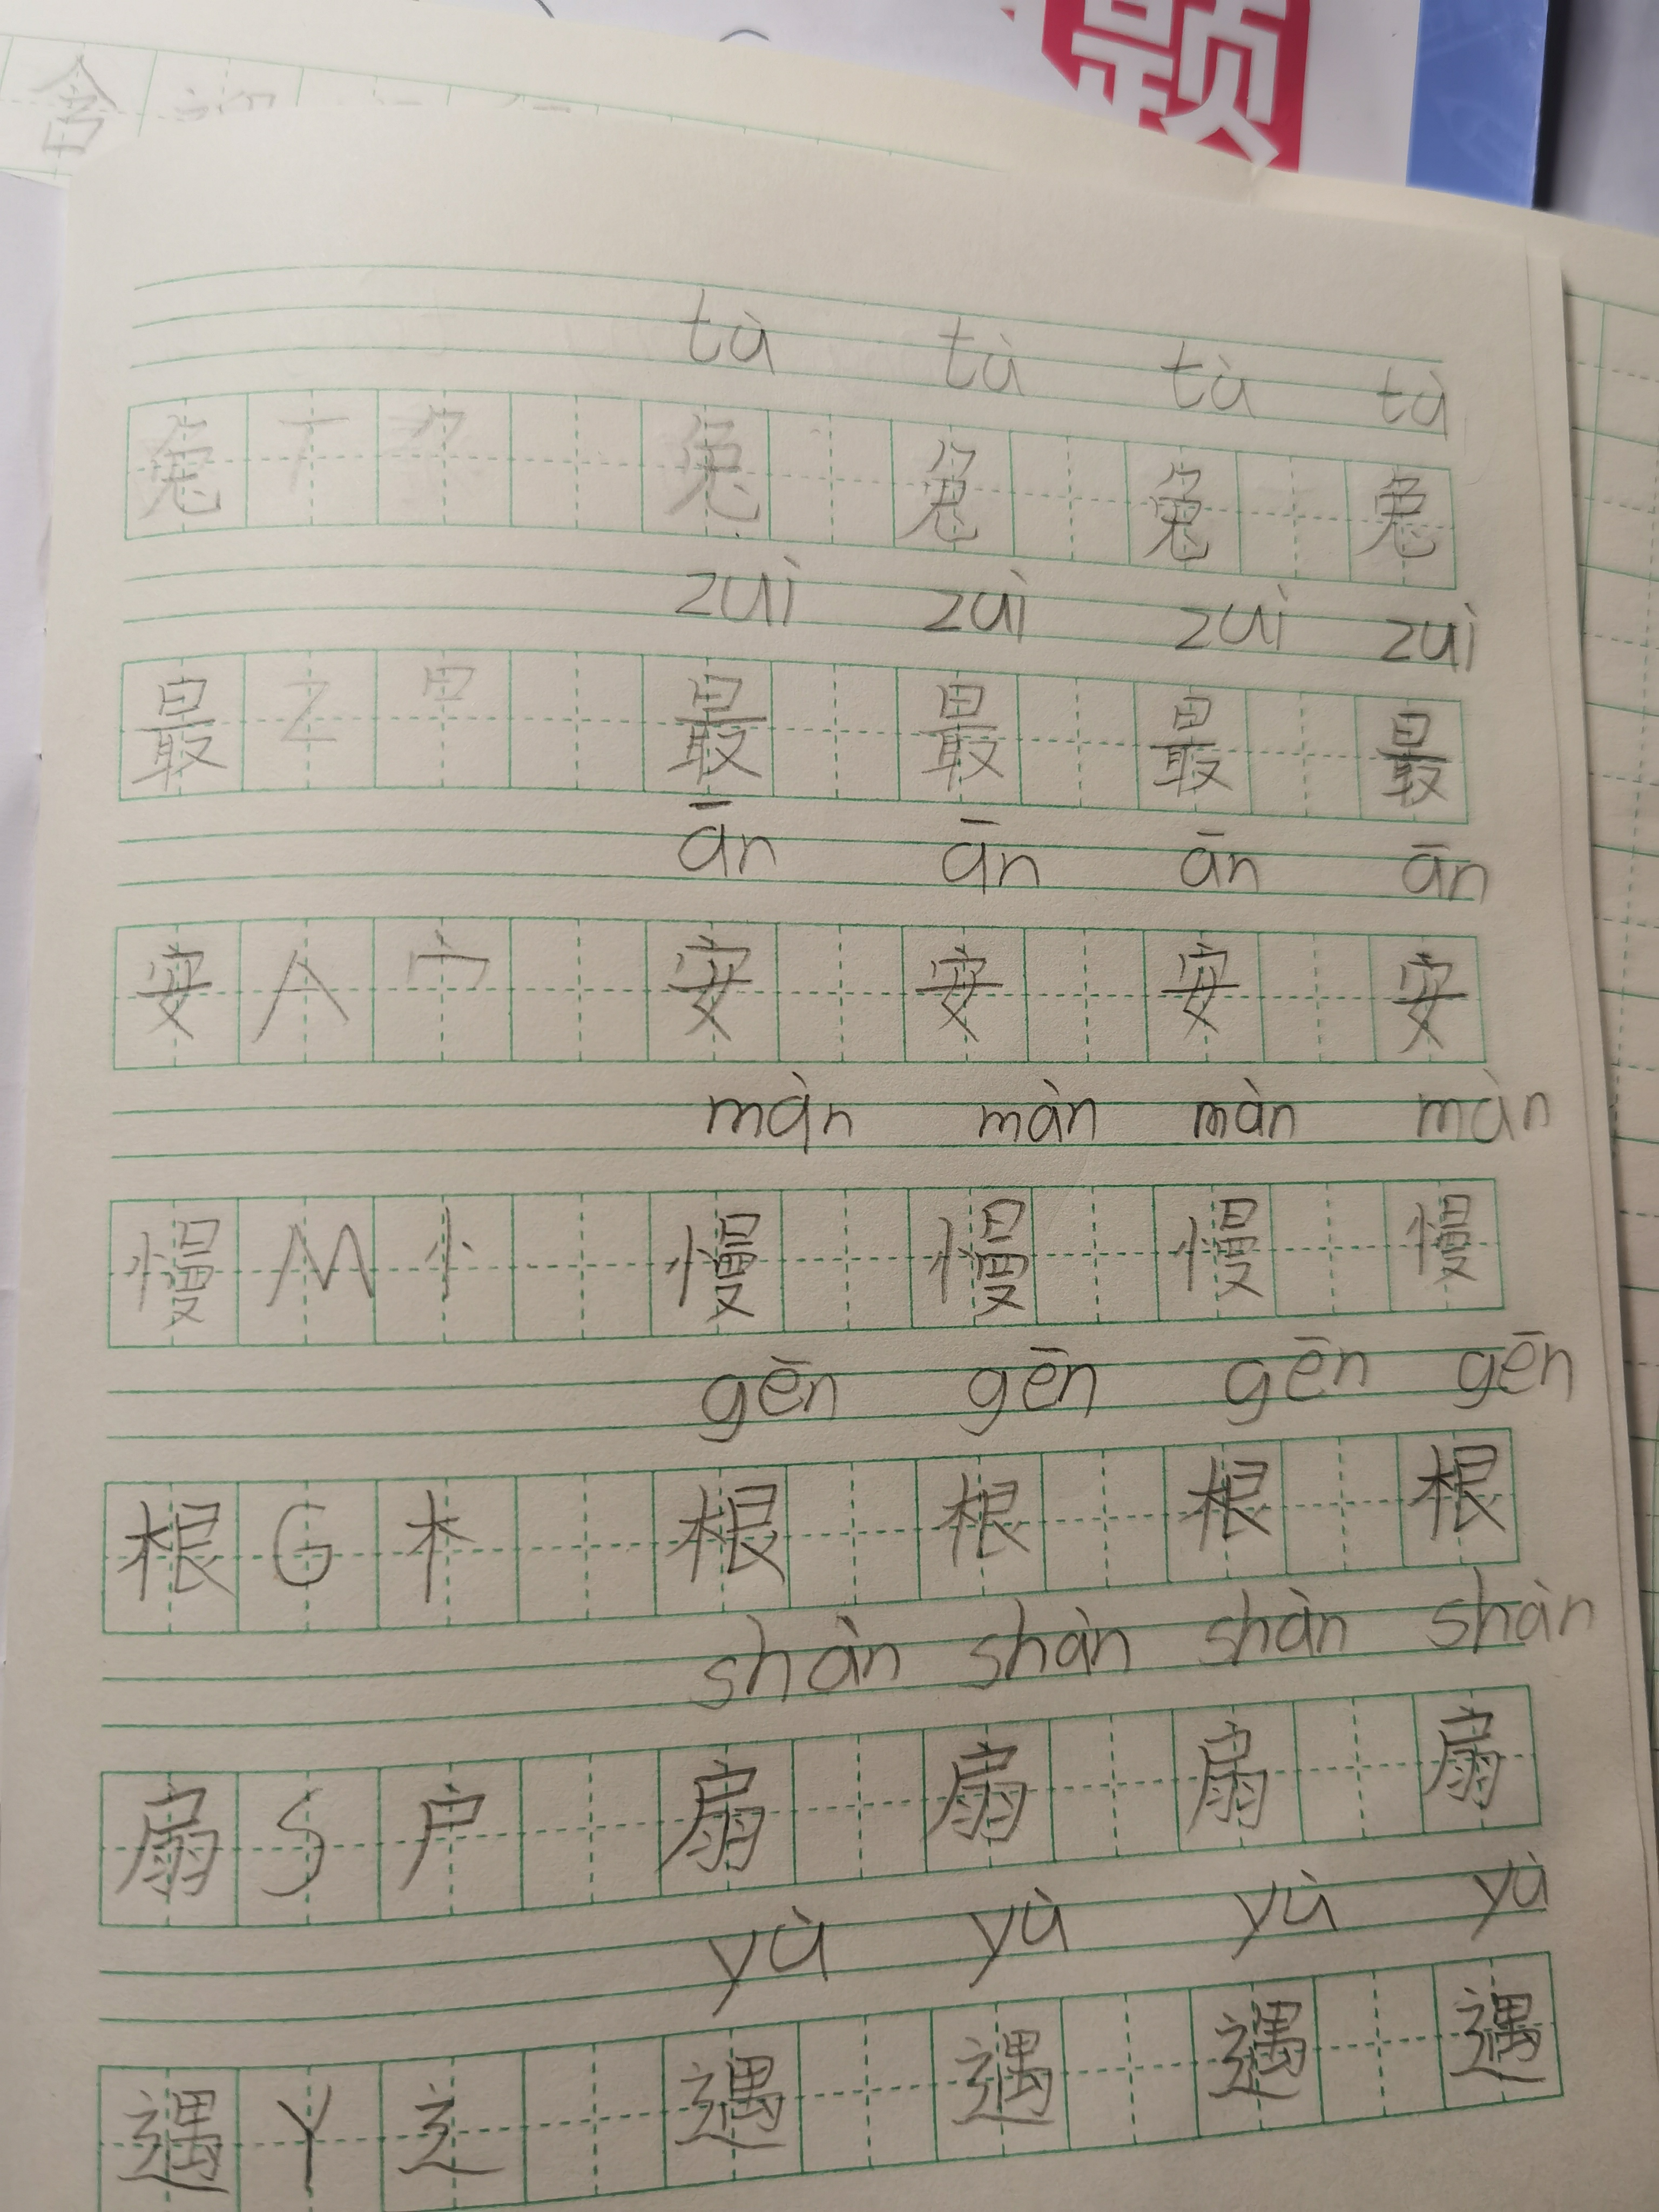 颗
含
tù tù tù tù
兔 T 兔 兔 兔 兔
zuì zuì zuì zuì
最 Z 曰 最 最 最 最
ān ān ān ān
安 A 宀 安 安 安 安
màn màn màn màn
慢 M 忄 慢 慢 慢 慢
gēn gēn gēn gēn
根 G 木 根 根 根 根
shàn shàn shàn shàn
扇 S 户 扇 扇 扇 扇
yù yù yù yù
遇 Y 辶 遇 遇 遇 遇